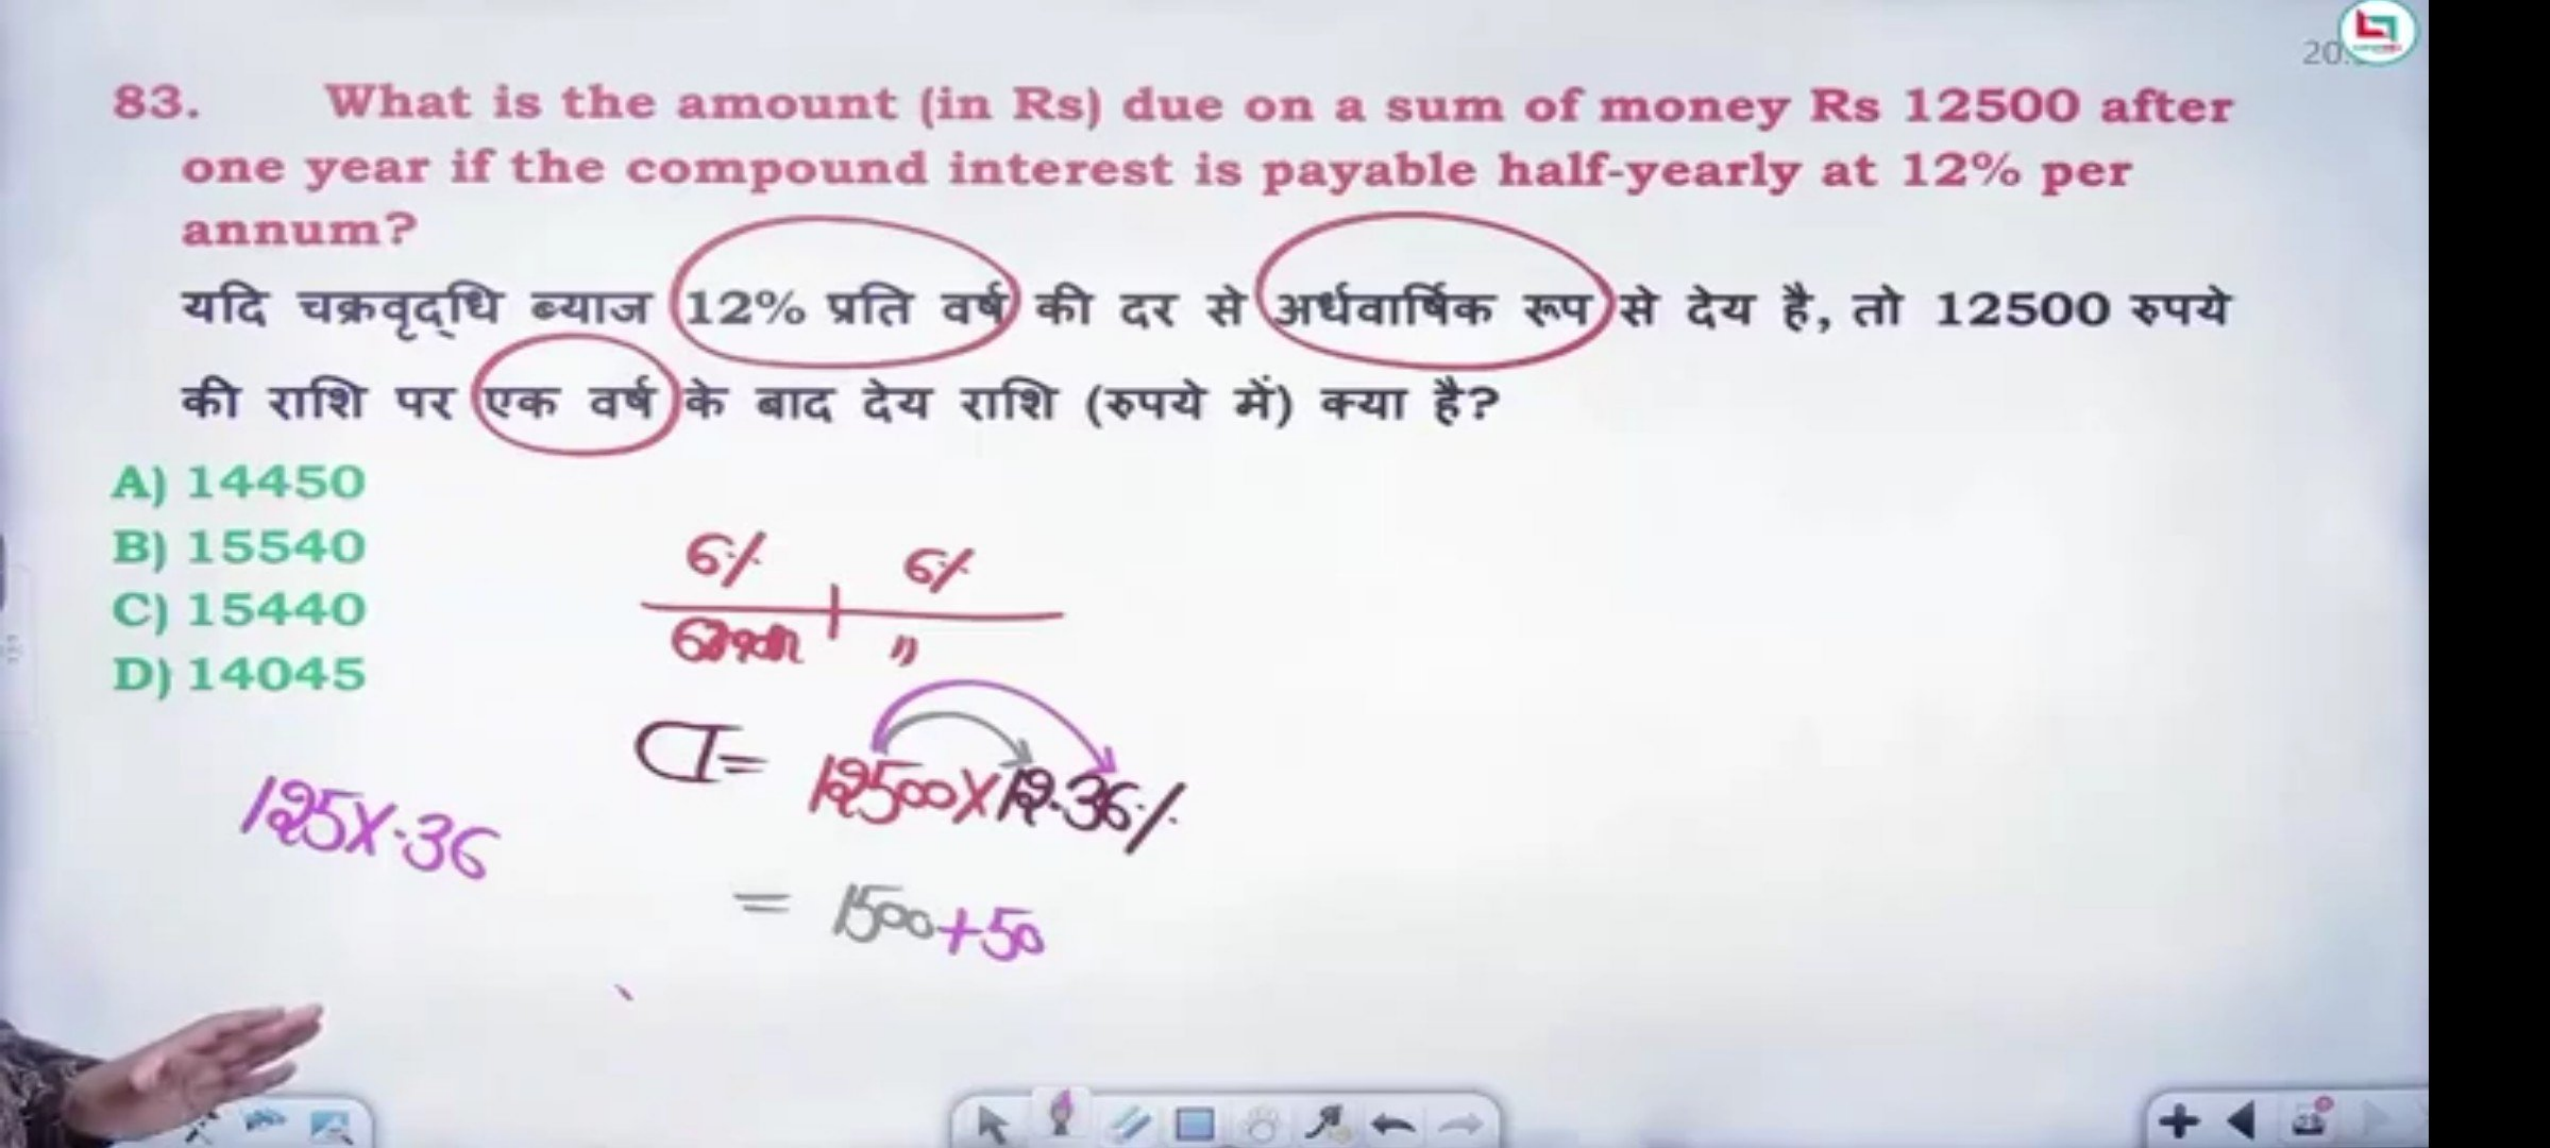 83. What is the amount (in Rs) due on a sum of money Rs 12500 after
one year if the compound interest is payable half-yearly at 12% per
annum?
यदि चक्रवृद्धि ब्याज 12% प्रति वर्ष की दर से अर्धवार्षिक रूप से देय है, तो 12500 रुपये
की राशि पर एक वर्ष के बाद देय राशि (रुपये में) क्या है?
A) 14450
B) 15540
C) 15440
D) 14045
6% 6%
"
CI= 12500X12.36%
125X.36
= 1500+50